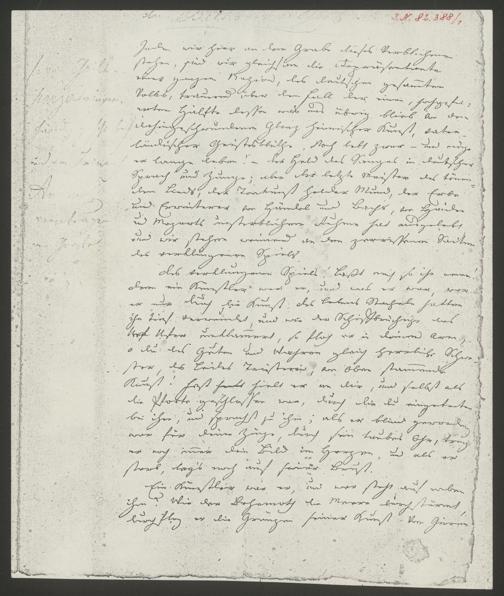 J.N. 82.388/1
Indem wir hier an dem Grabe dieses Verblichenen
stehen, sind wir gleichsam die Repräsentanten
einer ganzen Nazion, des deutschen gesammten
Volks, trauernd über den Fall der einen, hochgefei-
erten Hälfte dessen was uns übrig blieb von dem
dahingeschwundenen Glanz heimischer Kunst, vater-
ländischer Geistesblüthe. Noch lebt zwar – und möge
er lange leben! – der Held des Sanges in deutscher
Sprach und Zunge; aber der letzte Meister des tönen-
den Lieds, der Tonkunst holder Mund, der Erbe
und Erweiterer von Händel und Bachs, von Haydn
und Mozarts unsterblichem Ruhme hat ausgelebt,
und wir stehen weinend an den zerrissenen Saiten
des verklungenen Spiels.
Des verklungenen Spiels! Laßt mich so ihn nennen!
denn ein Künstler war er, und was er war, war
er nur durch die Kunst. Des Lebens Stacheln hatten
ihn tief verwundet, und wie der Schiffbrüchige das
Ufer umklammert, so floh er in deinen Arm,
o du des Guten und Wahren gleich herrliche Schwe-
ster, des Leides Trösterin, von oben stammende
Kunst! Fest hielt er an dir, und selbst als
die Pforte geschlossen war, durch die du eingetreten
bei ihm, und sprachst zu ihm; als er blind geworden
war für deine Züge, durch sein taubes Ohr, trug
er noch immer dein Bild im Herzen, und als er
starb, lag's noch auf seiner Brust.
Ein Künstler war er, und wer steht auf neben
ihm? Wie der Behemoth die Meere durchstürmt,
durchflog er die Gränzen seiner Kunst. Vom Girren